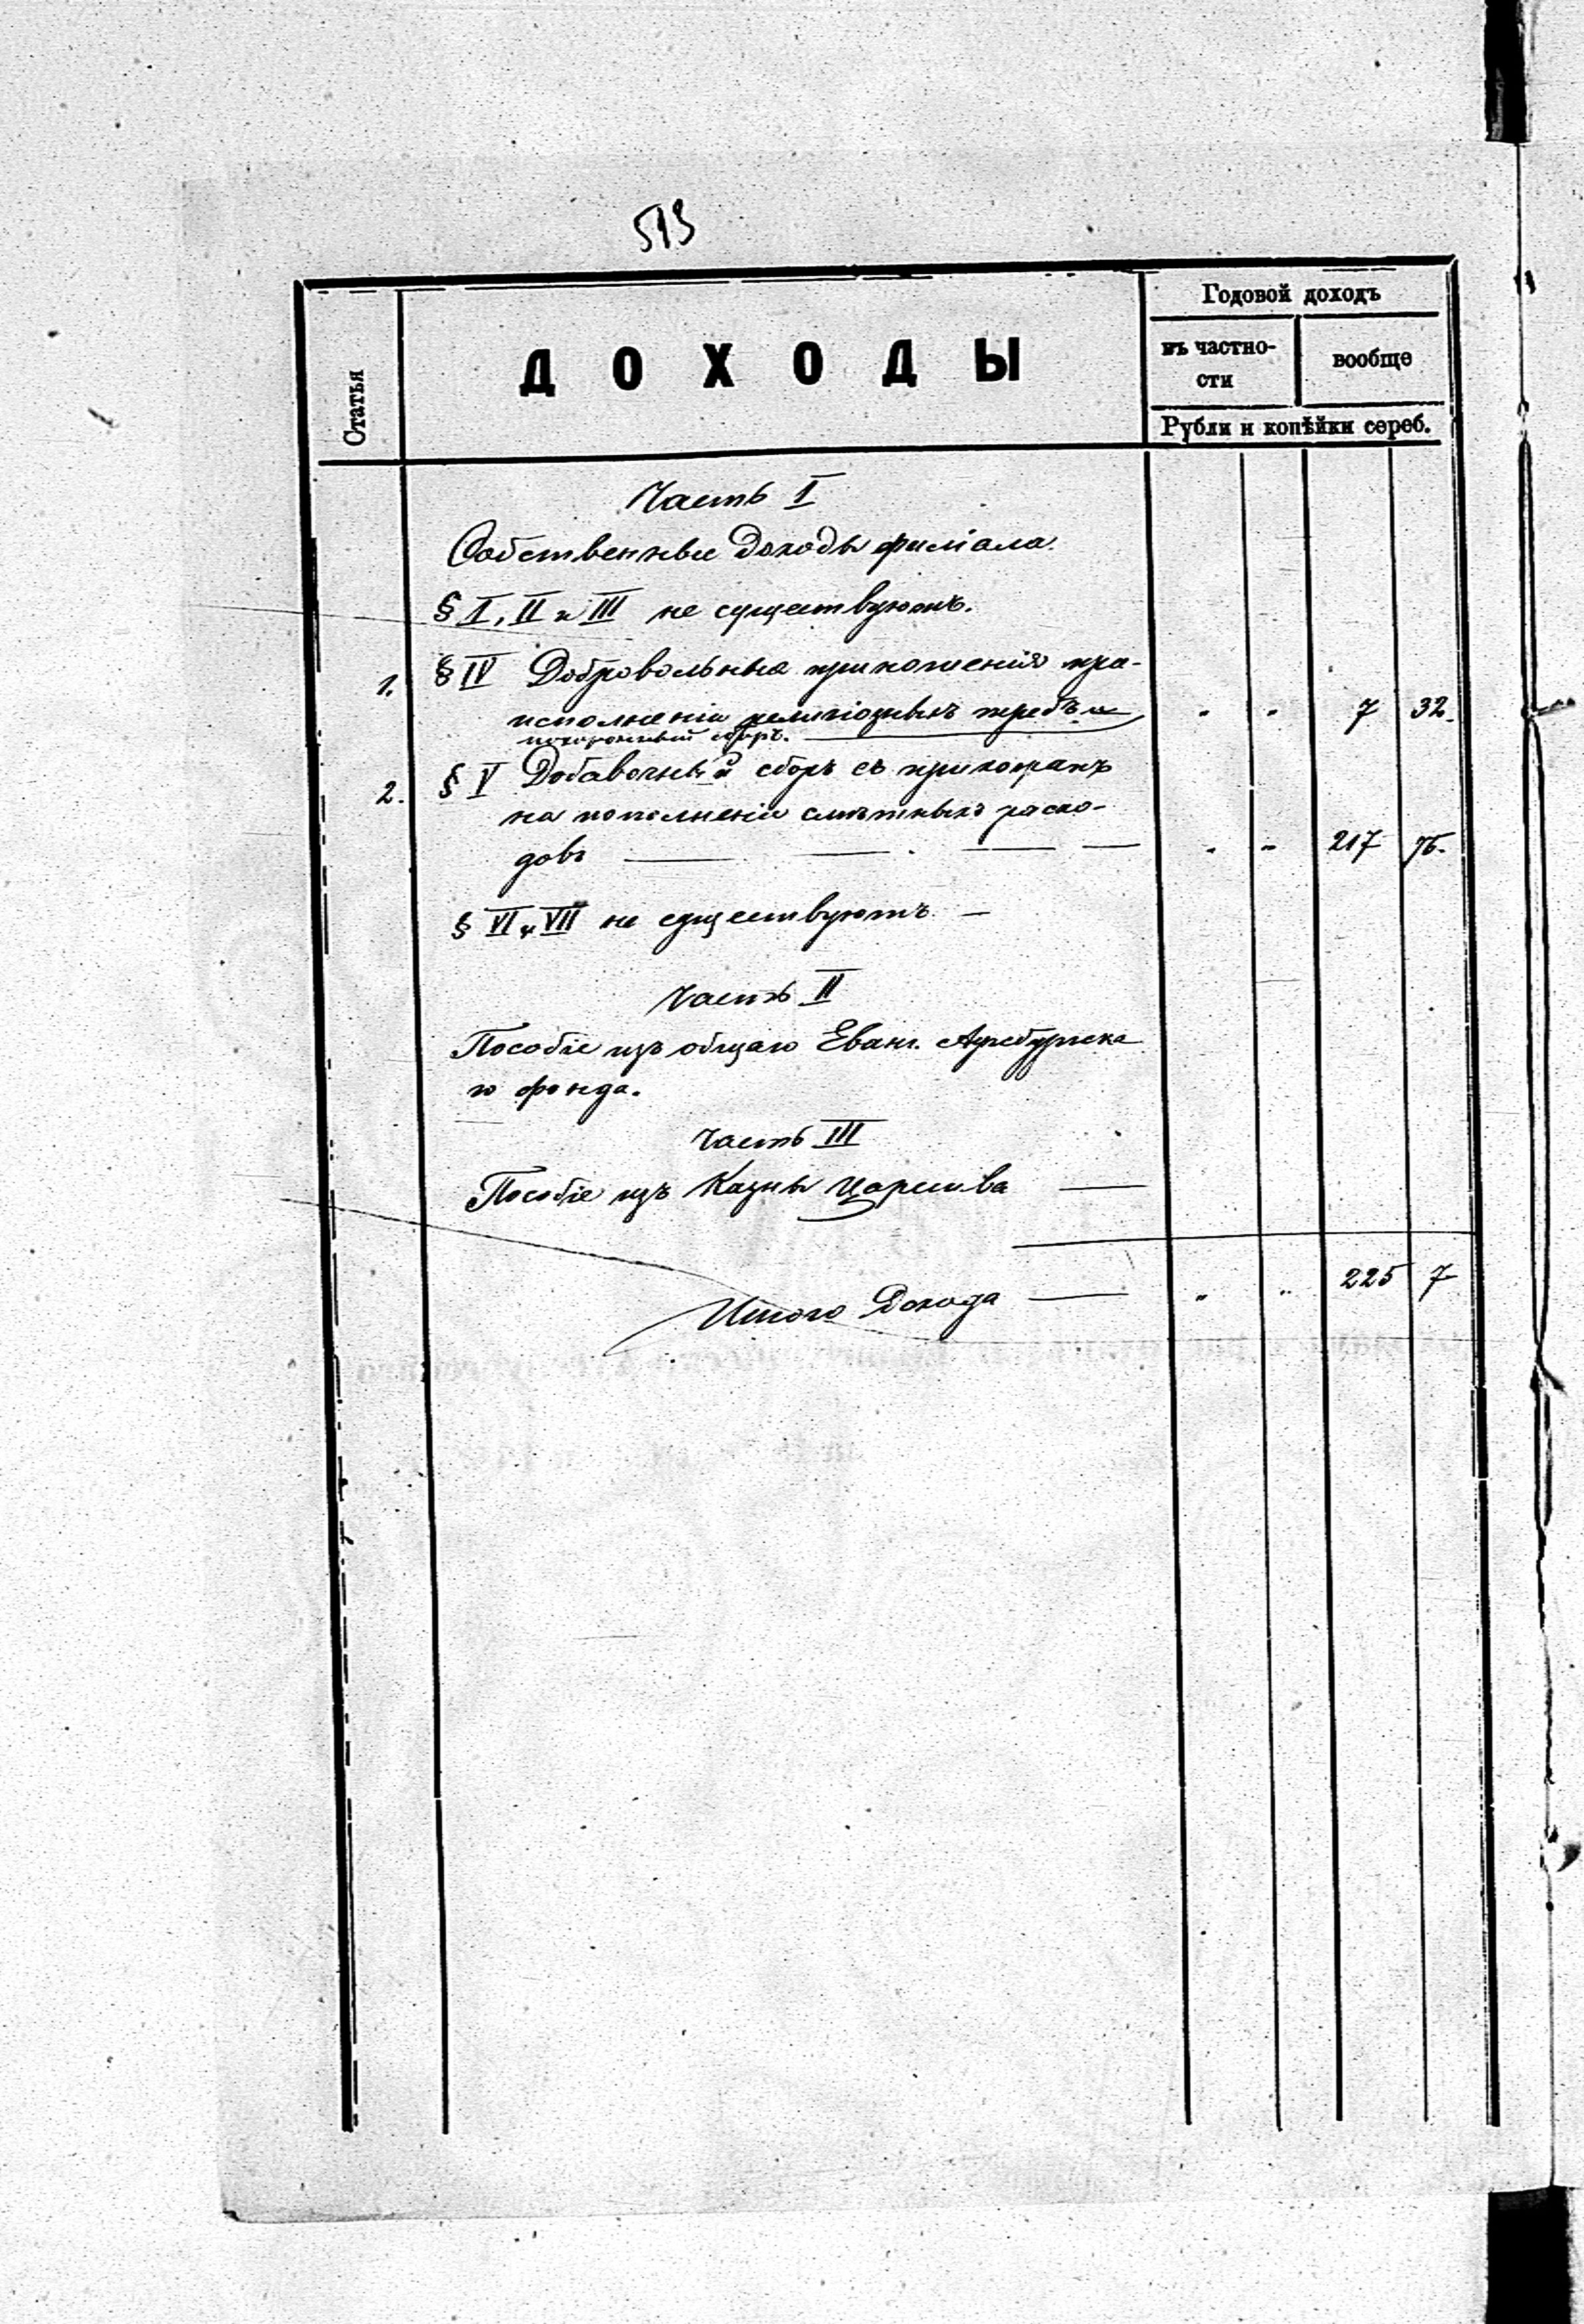 513
Статья
ДОХОДЫ
Годовой доходъ
въ частно-
сти
вообще
Рубли и копѣйки сереб.
Часть I
Собственные Доходы филіала.
§ I, II и III не существуютъ.
1. § IV Добровольныя приношенія при
исполненіи религіозныхъ требъ и " " 7 32
похоронный сборъ.
2. § V Добавочный сборъ съ прихожанъ
на пополненіе смѣтныхъ расхо-
довъ " " 217 75.
§ VI и VII не существуютъ
Часть II
Пособіе изъ общаго Еванг. Аугсбургска
го фонда.
Часть III
Пособіе изъ Казны Царства
Итого Дохода " " 225 7